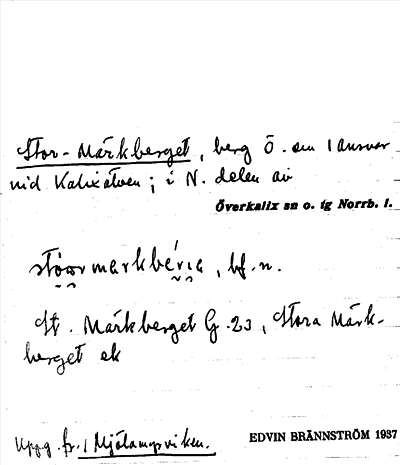 Stor-Märkberget, berg Ö. om Jansvar
vid Kalixälven; i N. delen av
Överkalix sn o. tg Norrb. l.
stoormarkbériɑ, bf. n.
St. Märkberget G. 23, Stora Märk-
berget ek
Uppg. fr. Mjölampviken.
EDVIN BRÄNNSTRÖM 1937